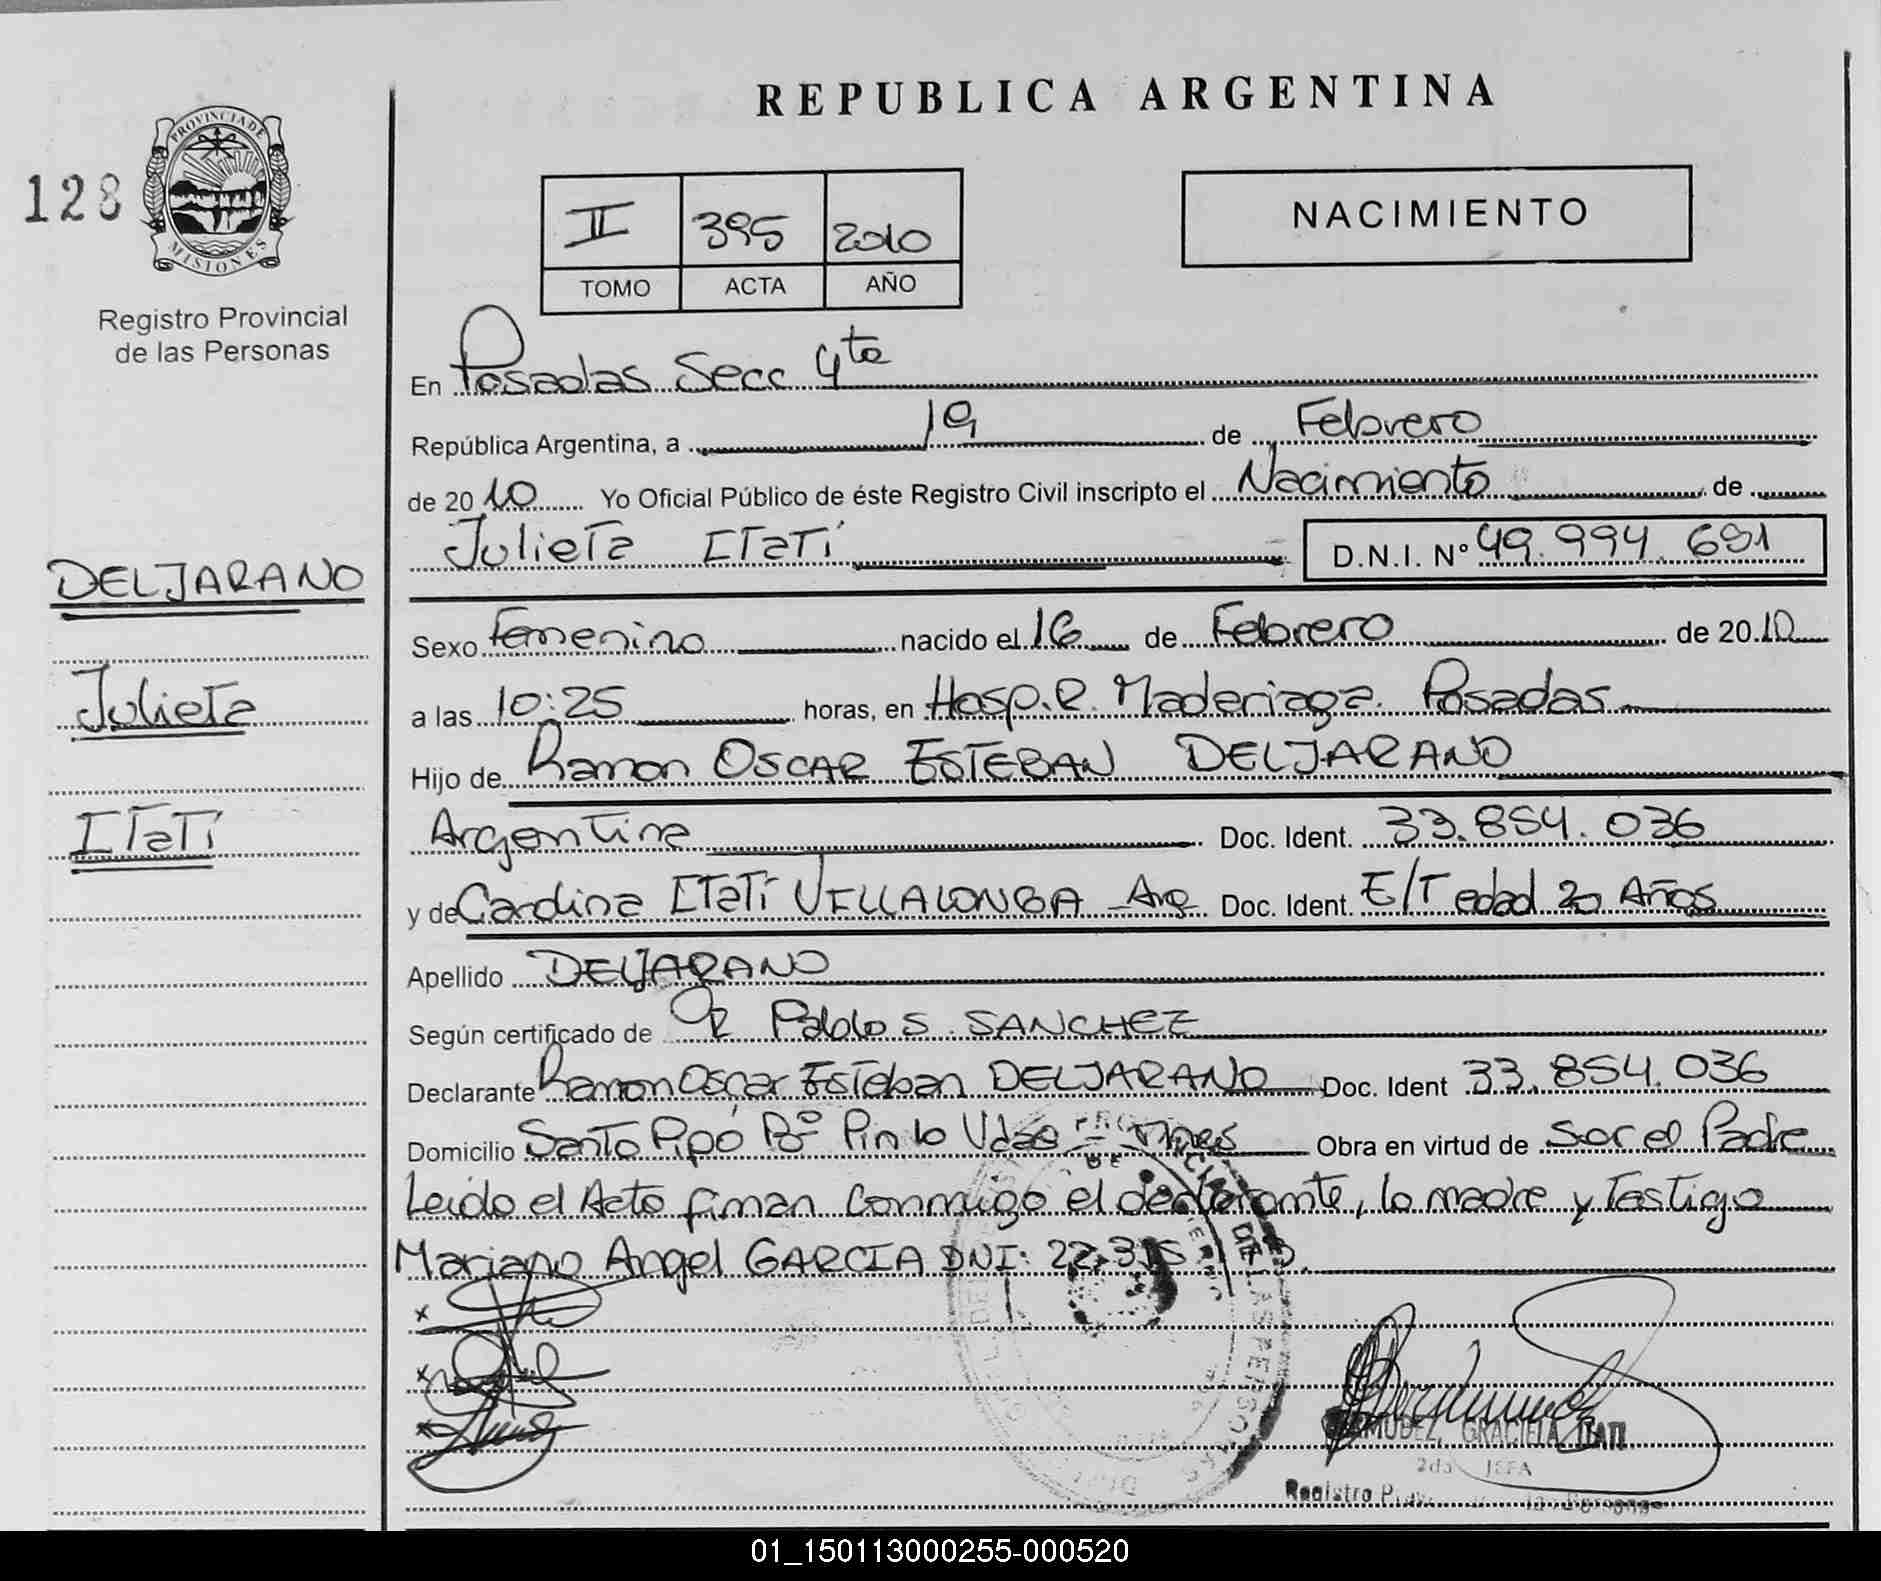 REPUBLICA ARGENTINA
128
PROVINCIA DE
MISIONES
Registro Provincial
de las Personas
II 395 2010
TOMO ACTA AÑO
NACIMIENTO
En Posadas Secc 4ta
República Argentina, a 19 de Febrero
de 2010 Yo Oficial Público de éste Registro Civil inscripto el Nacimiento de
Julieta Itatí D.N.I. Nº 49.994.691
DELJARANO
Julieta
Itatí
Sexo Femenino nacido el 16 de Febrero de 2010
a las 10:25 horas, en Hosp. R. Maderiaga. Posadas
Hijo de Ramon OSCAR ESTEBAN DELJARANO
Argentina Doc. Ident. 33.854.036
y de Carolina Itatí VILLALONGA Arg Doc. Ident. E/T edad 20 Años
Apellido DELJARANO
Según certificado de DR Pablo S. SANCHEZ
Declarante Ramon Oscar Esteban DELJARANO Doc. Ident 33.854.036
Domicilio Santo Pipó Bº Obra en virtud de Ser el Padre
Leido el Acto firman conmigo el declarante, la madre y Testigo
Mariano Angel GARCIA DNI:
GRACIELA ITATI
2da JEFA
Registro
01_150113000255-000520